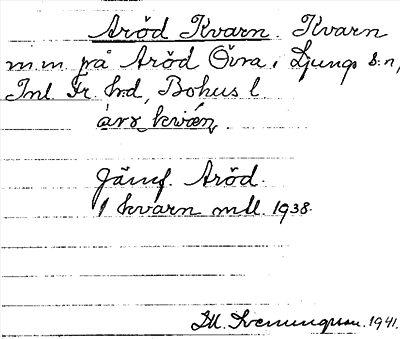 Aröd Kvarn. Kvarn
m.m. på Aröd Övra i Ljungs s:n,
Inl. Fr. h:d, Bohus l
Jämf. Aröd.
1 kvarn mll. 1938.
1941.